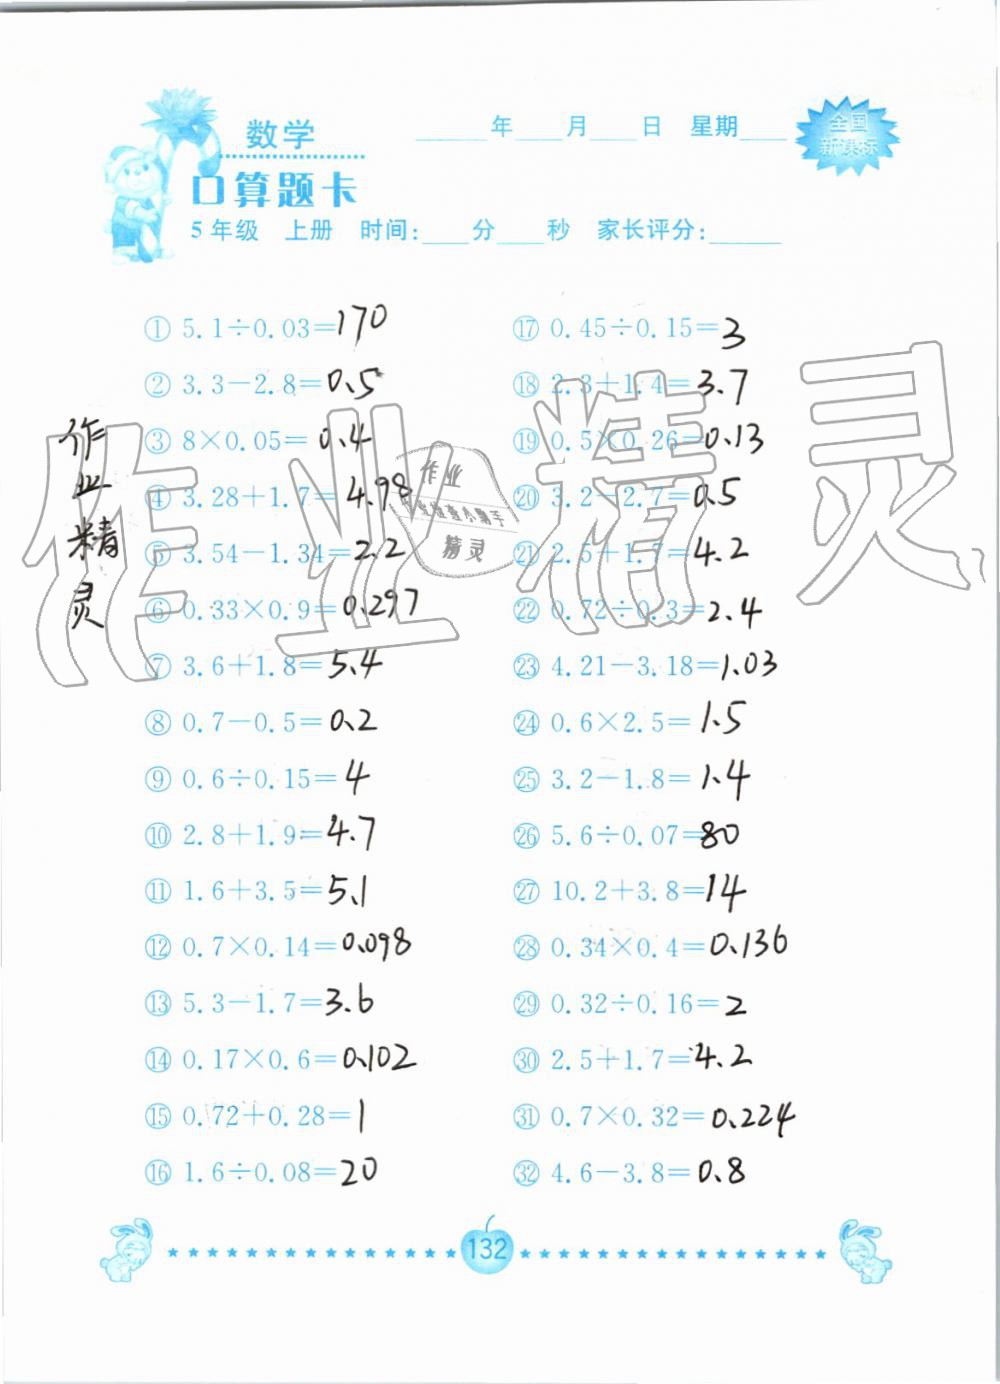 数学
____年____月____日 星期____
全国
新课标
口算题卡
5年级 上册 时间:____分____秒 家长评分:____
① 5.1÷0.03=170
② 3.3-2.8=0.5
③ 8×0.05=0.4
④ 3.28+1.7=4.98
⑤ 3.54-1.34=2.2
⑥ 0.33×0.9=0.297
⑦ 3.6+1.8=5.4
⑧ 0.7-0.5=0.2
⑨ 0.6÷0.15=4
⑩ 2.8+1.9=4.7
⑪ 1.6+3.5=5.1
⑫ 0.7×0.14=0.098
⑬ 5.3-1.7=3.6
⑭ 0.17×0.6=0.102
⑮ 0.72+0.28=1
⑯ 1.6÷0.08=20
⑰ 0.45÷0.15=3
⑱ 2.3+1.4=3.7
⑲ 0.5×0.26=0.13
⑳ 3.2-2.7=0.5
㉑ 2.5+1.7=4.2
㉒ 0.72÷0.3=2.4
㉓ 4.21-3.18=1.03
㉔ 0.6×2.5=1.5
㉕ 3.2-1.8=1.4
㉖ 5.6÷0.07=80
㉗ 10.2+3.8=14
㉘ 0.34×0.4=0.136
㉙ 0.32÷0.16=2
㉚ 2.5+1.7=4.2
㉛ 0.7×0.32=0.224
㉜ 4.6-3.8=0.8
作业精灵
作业精灵
作业
精灵
132